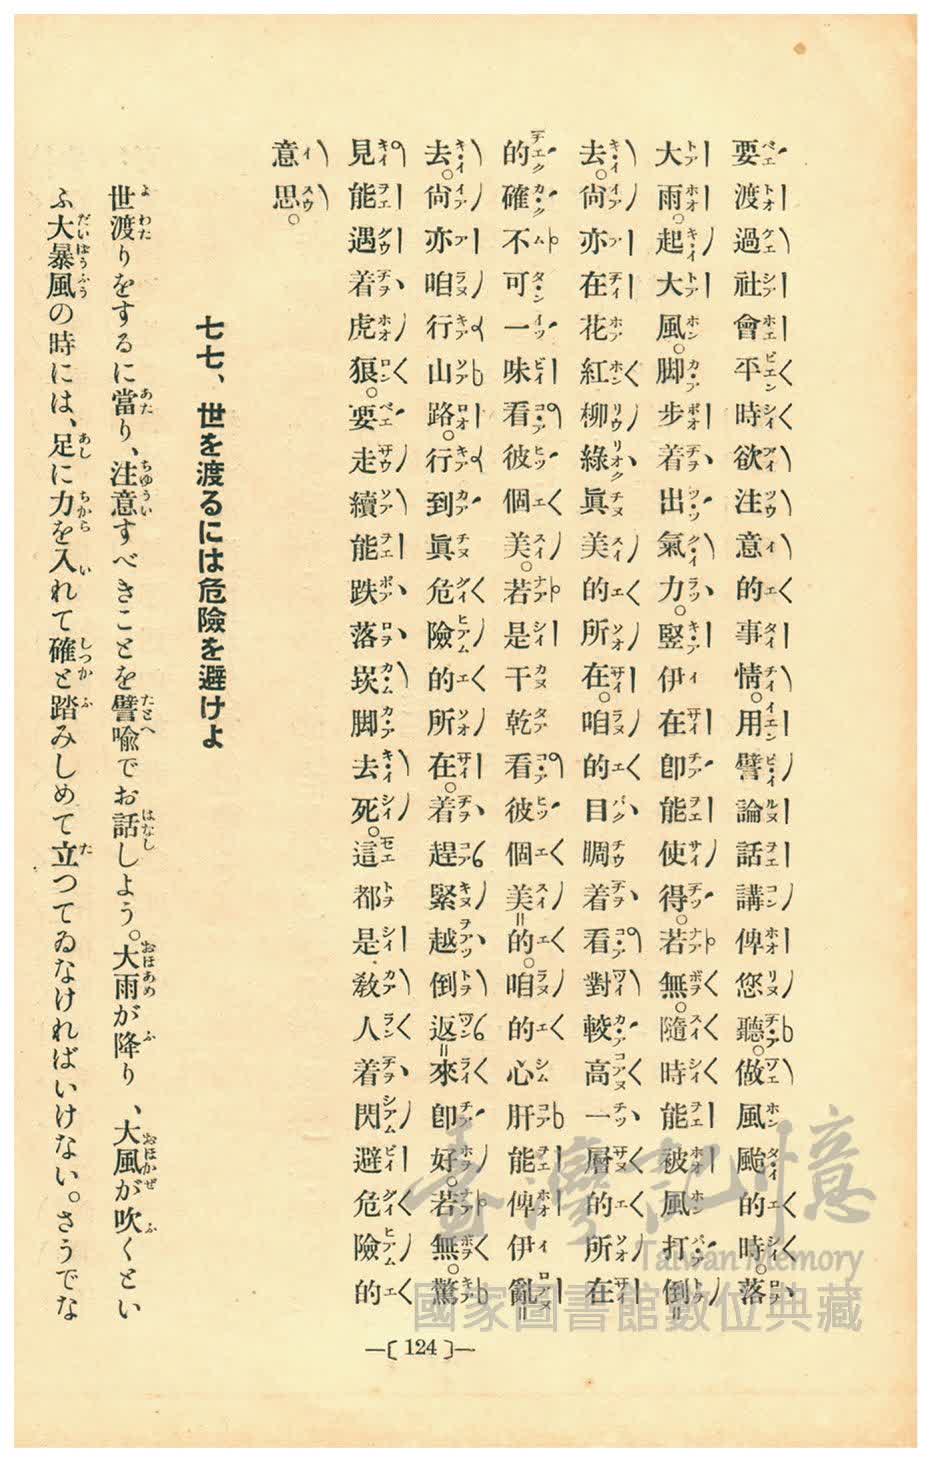 要渡過社會平時欲注意的事情。用譬論話講俾您聽。做風颱的時。落
大雨。起大風。脚步着出氣力。竪伊在卽能使得。若無。隨時能被風打倒=
去。尙亦在花紅柳綠眞美的所在。咱的目睭着看對較高一層的所在
的確不可一味看彼個美。若是干乾看彼個美=的。咱的心肝能俾伊亂=
去。尙亦咱行山路。行到眞危險的所在。着趕緊越倒返=來卽好。若無。驚
見能遇着虎狼。要走續能跌落崁脚去死。這都是敎人着閃避危險的
意思。
七七、世を渡るには危險を避けよ
世渡りをするに當り、注意すべきことを譬喩でお話しよう。大雨が降り、大風が吹くとい
ふ大暴風の時には、足に力を入れて確と踏みしめて立つてゐなければいけない。さうでな
—〔124〕—
臺灣記憶
Taiwan Memory
國家圖書館數位典藏